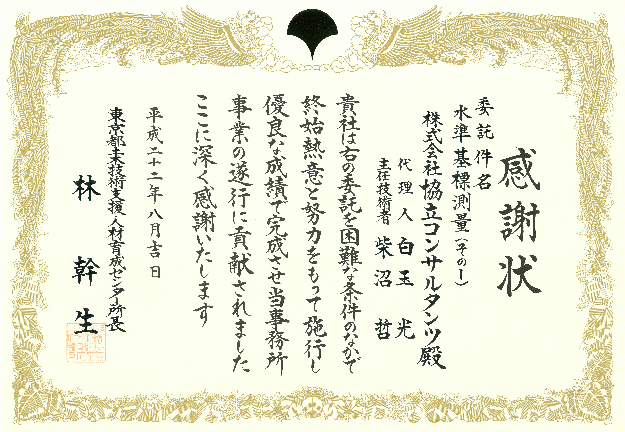 感謝状
委託件名
水準基標測量(その1)
株式会社協立コンサルタンツ殿
代理人 白玉光
主任技術者 柴沼哲
貴社は右の委託を困難な条件のなかで
終始熱意と努力をもって施行し
優良な成績で完成させ当事務所
事業の遂行に貢献されました
ここに深く感謝いたします
平成二十二年八月吉日
東京都土木技術支援・人材育成センター所長
林幹生